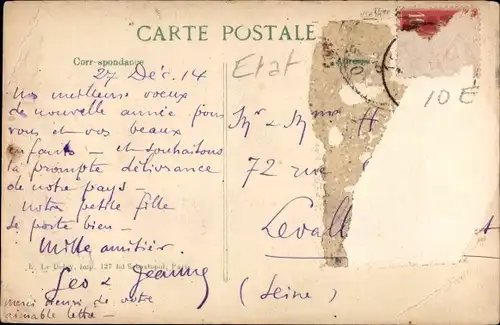 CARTE POSTALE
Correspondance
Adresse
Etat
10 E
27 Déc. 14
Nos meilleurs voeux
de nouvelle année pour
vous et vos beaux
enfants — et souhaitons
la prompte délivrance
de notre pays —
Notre petite fille
se porte bien —
Mille amitiés.
Geo & Jeanne
merci de votre
aimable lettre —
Mr & Mme H
72 rue
Levall
(Seine)
E. Le Deley, imp., 127 Bd Sébastopol, Paris